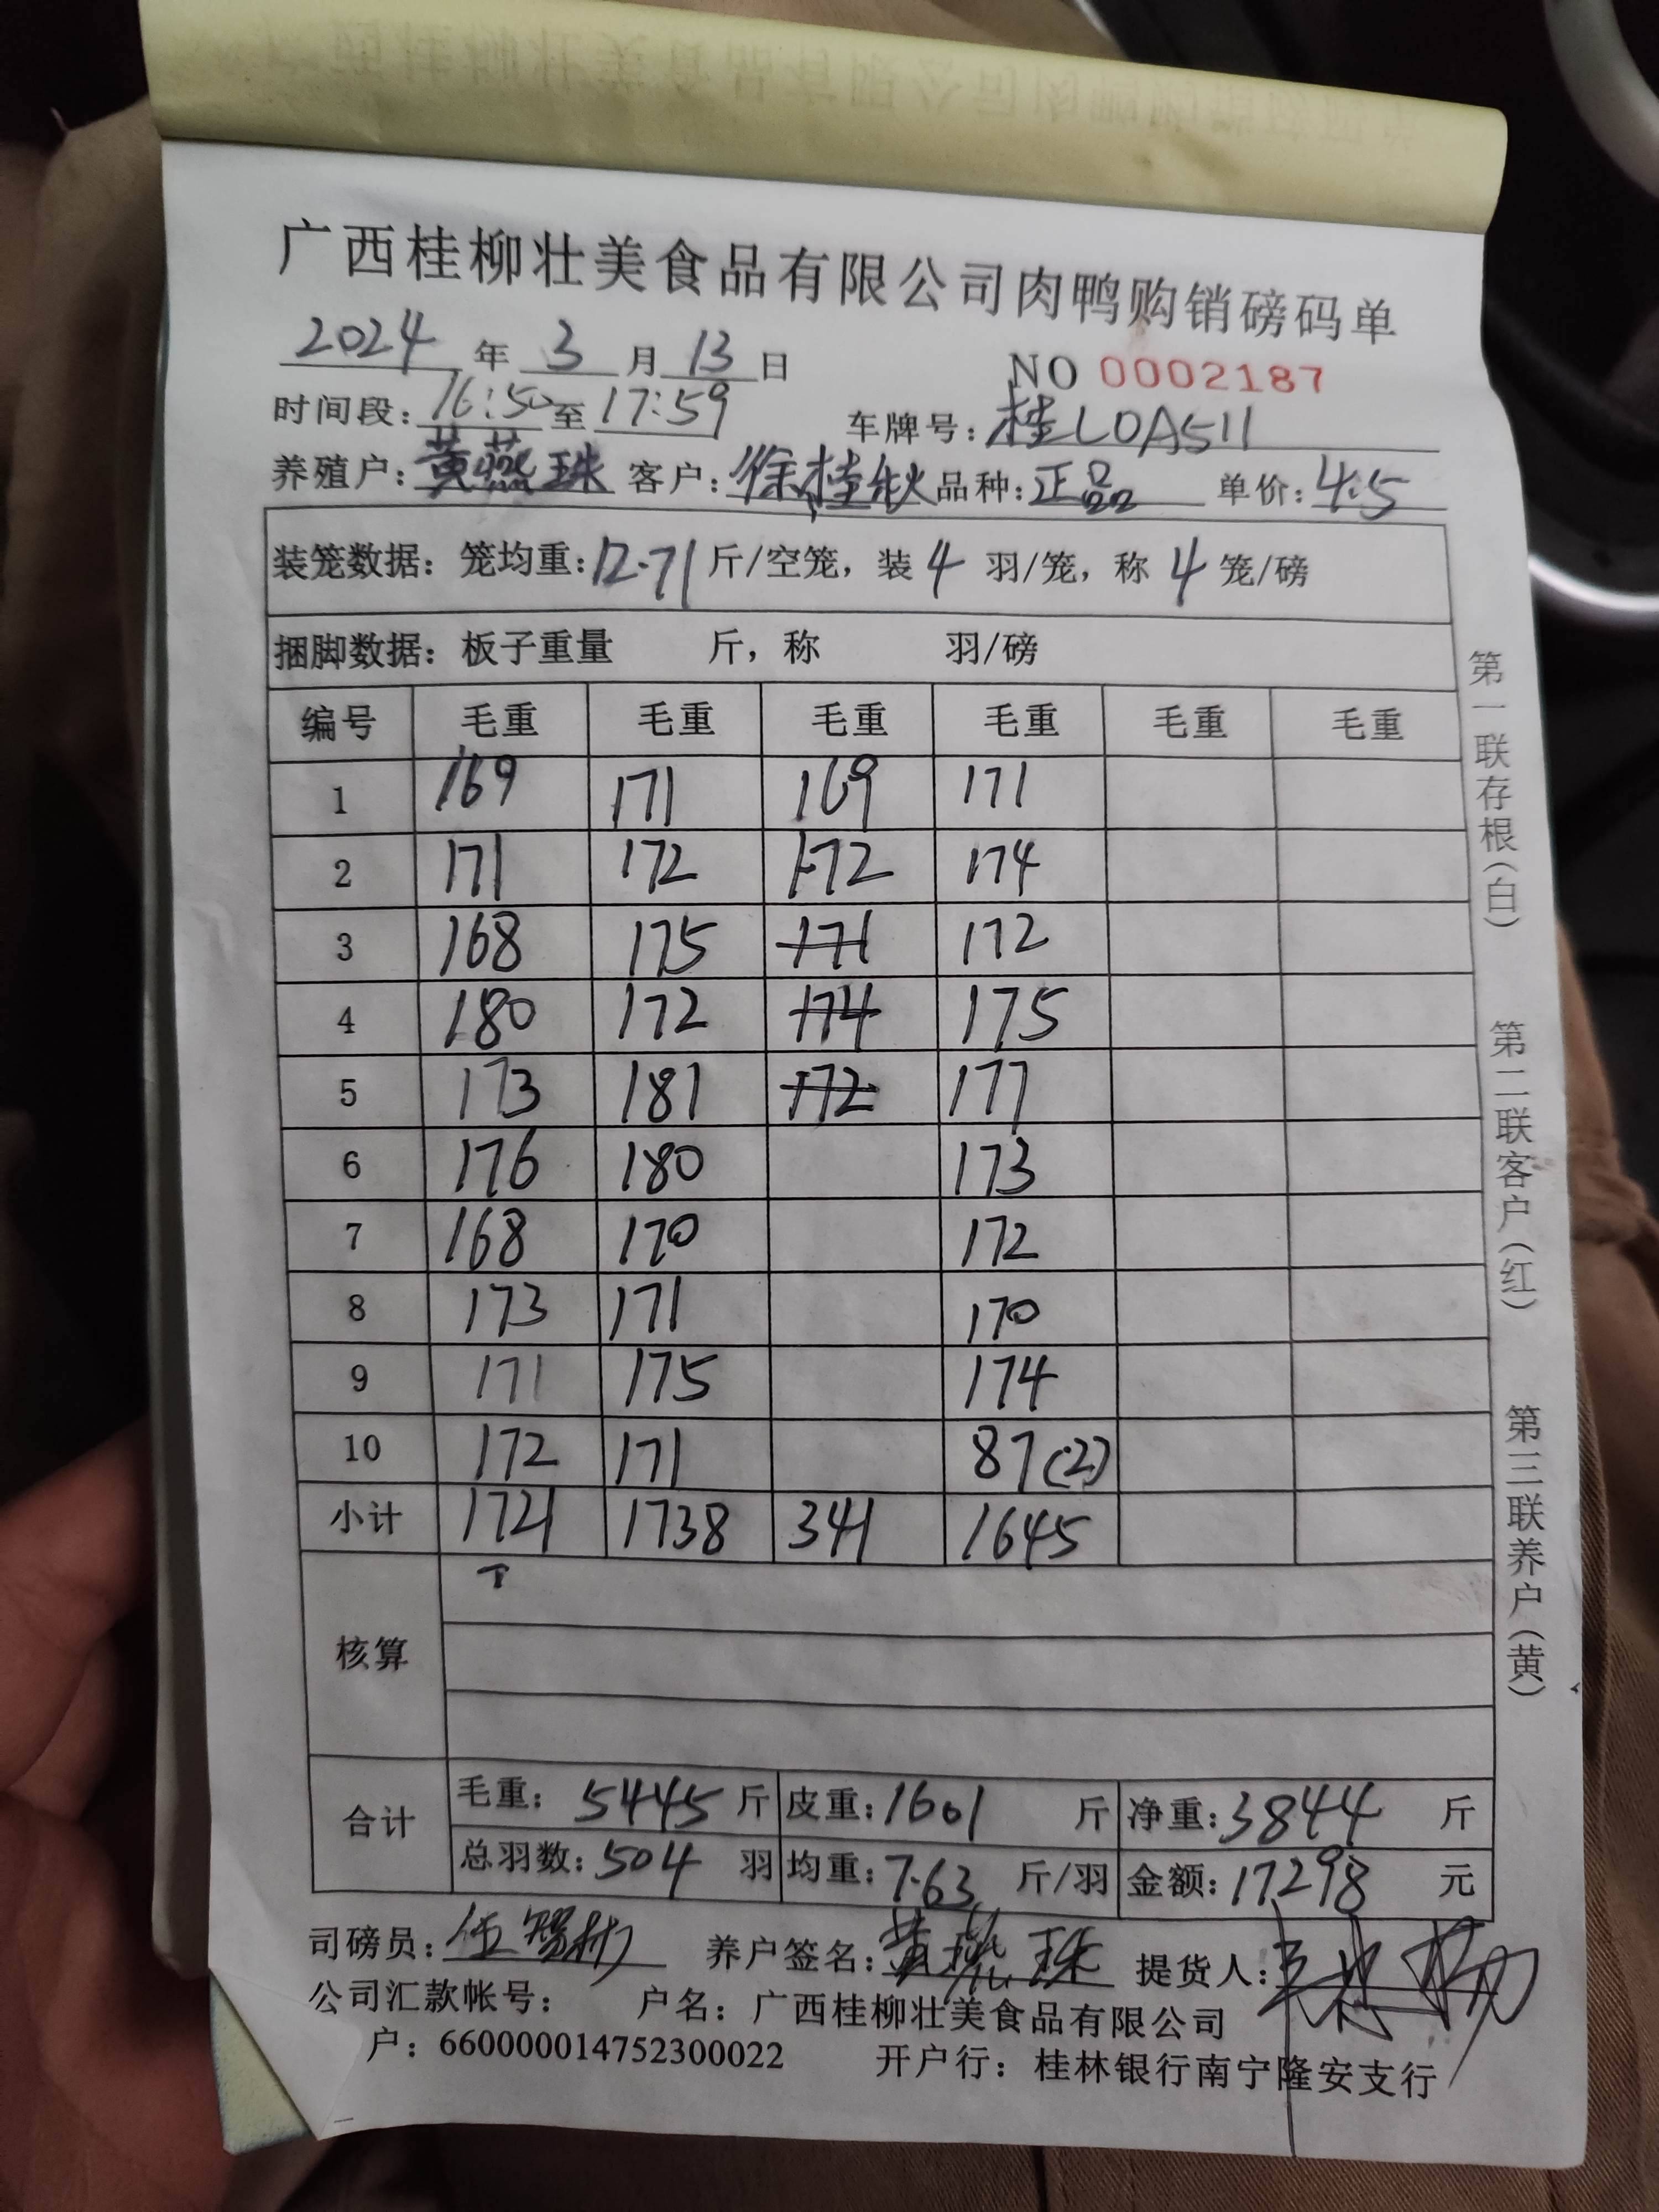 广西桂柳壮美食品有限公司肉鸭购销磅码单
2024 年 3 月 13 日 NO 0002187
时间段: 16:50 至 17:59 车牌号: 桂L0A511
养殖户: 黄燕珠 客户: 徐桂秋 品种: 正品 单价: 4.5
装笼数据: 笼均重: 12.71 斤/空笼, 装 4 羽/笼, 称 4 笼/磅
捆脚数据: 板子重量 斤, 称 羽/磅
编号 毛重 毛重 毛重 毛重 毛重 毛重
1 169 171 169 171
2 171 172 172 174
3 168 175 171 172
4 180 172 174 175
5 173 181 172 177
6 176 180 173
7 168 170 172
8 173 171 170
9 171 175 174
10 172 171 87(2)
小计 1721 1738 341 1645
核算
合计 毛重: 5445 斤 皮重: 1601 斤 净重: 3844 斤
总羽数: 504 羽 均重: 7.63 斤/羽 金额: 17298 元
司磅员: 伍 养户签名: 黄燕珠 提货人:
公司汇款帐号: 户名: 广西桂柳壮美食品有限公司
户: 660000014752300022 开户行: 桂林银行南宁隆安支行
第一联存根(白) 第二联客户(红) 第三联养户(黄)